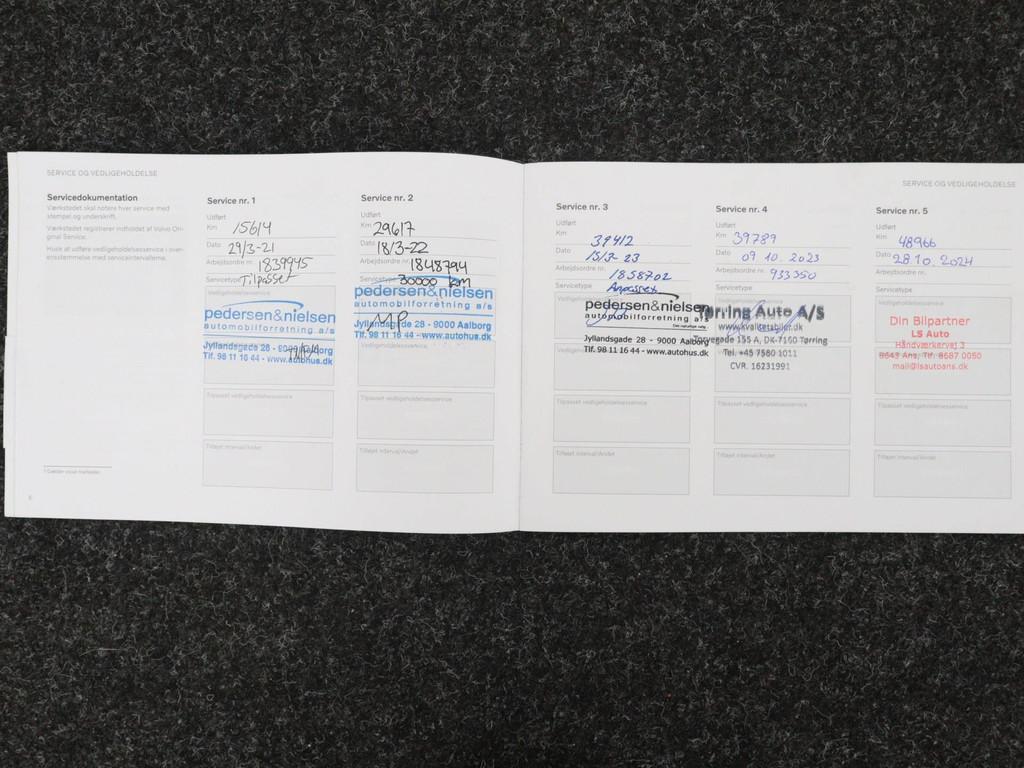 SERVICE OG VEDLIGEHOLDELSE
Servicedokumentation
Værkstedet skal notere hver service med
stempel og underskrift.
Værkstedet registrerer indholdet af Volvo Ori-
ginal Service.
Husk at udføre vedligeholdelsesservice i over-
ensstemmelse med serviceintervallerne.
6
Service nr. 1
Udført
Km 15614
Dato 29/3-21
Arbejdsordre nr. 1839945
Servicetype Tilpasset
Vedligeholdelsesservice
pedersen&nielsen
automobilforretning a/s
Jyllandsgade 28 - 9000 Aalborg
Tlf. 98 11 16 44 - www.autohus.dk
Tilpasset vedligeholdelsesservice
Tilføjet interval/Andet
Service nr. 2
Udført
Km 29617
Dato 18/3-22
Arbejdsordre nr. 1848794
Servicetype 30000 km
pedersen&nielsen
automobilforretning a/s
MP
Jyllandsgade 28 - 9000 Aalborg
Tlf. 98 11 16 44 - www.autohus.dk
Tilpasset vedligeholdelsesservice
Tilføjet interval/Andet
SERVICE OG VEDLIGEHOLDELSE
Service nr. 3
Udført
Km 39412
Dato 13/3-23
Arbejdsordre nr. 1858702
Servicetype
pedersen&nielsen
automobilforretning a/s
Jyllandsgade 28 - 9000 Aalborg
Tlf. 98 11 16 44 - www.autohus.dk
Tilpasset vedligeholdelsesservice
Tilføjet interval/Andet
Service nr. 4
Udført
Km 39789
Dato 09.10.2023
Arbejdsordre nr. 933350
Servicetype
Tørring Auto A/S
www.kvalitetsbiler.dk
Torvegade 155 A, DK-7160 Tørring
Tel. +45 7580 1011
CVR. 16231991
Tilpasset vedligeholdelsesservice
Tilføjet interval/Andet
Service nr. 5
Udført
Km 48966
Dato 28.10.2024
Arbejdsordre nr.
Servicetype
Vedligeholdelsesservice
Din Bilpartner
LS Auto
Håndværkervej 3
8643 Ans, Tlf. 8687 0050
mail@lsautoans.dk
Tilpasset vedligeholdelsesservice
Tilføjet interval/Andet